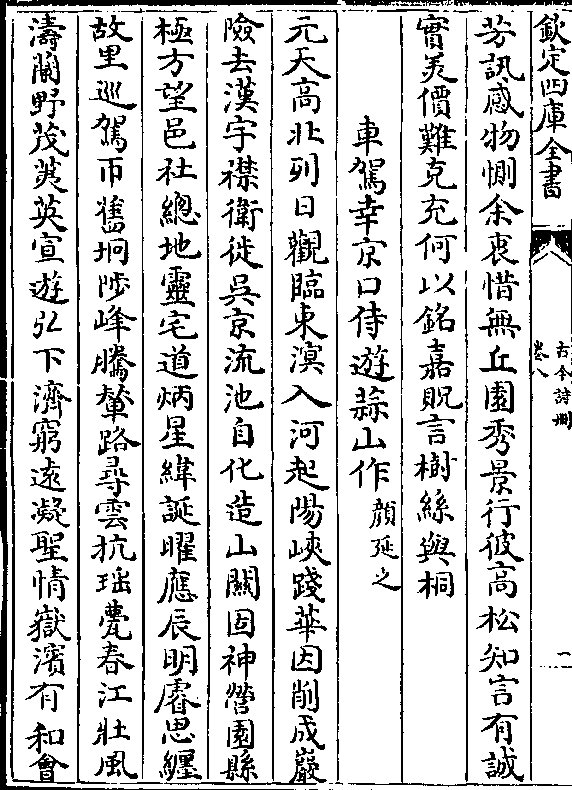 欽定四庫全書
古今詩刪
卷八
一
芳訊感物惻余衷惜無丘園秀景行彼高松知言有誠
實美價難克充何以銘嘉貺言樹絲與桐
車駕幸京口侍遊蒜山作 顔延之
元天高北列日觀臨東溟入河起陽峽踐華因削成巖
險去漢宇襟衛徙吳京流池自化造山關固神營園縣
極方望邑社總地靈宅道炳星緯誕曜應辰明睿思纏
故里巡駕帀舊坰陟峰騰輦路尋雲抗瑶甍春江壯風
濤蘭野茂荑英宣遊弘下濟窮遠凝聖情嶽濱有和會